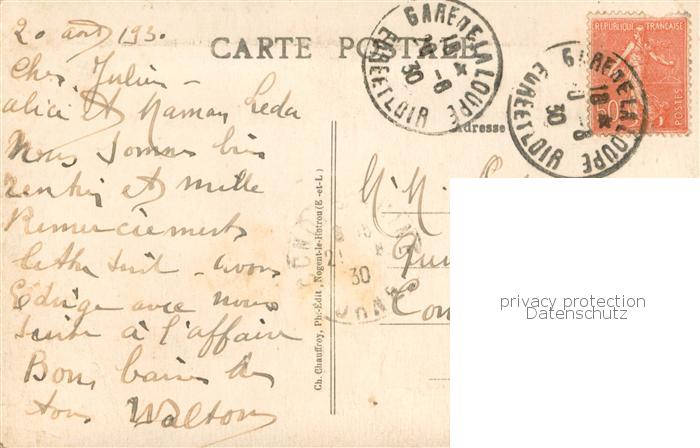 20 août 1930
CARTE POSTALE
Cher Julien
alice et Maman Leda
Nous sommes bien
rentrés et mille
Remerciements
lettre suit - avons
Edwige avec nous
suite à l'affaire
Bons baisers de
tous Walton
Ch. Chauffroy, Ph.-Edit, Nogent-le-Rotrou (E-et-L)
Adresse
GARE DE LA LOUPE
EURE ET LOIR
18
30
GARE DE LA LOUPE
EURE ET LOIR
18
30
REPUBLIQUE FRANÇAISE
POSTES
50
30
M. M.
privacy protection
Datenschutz